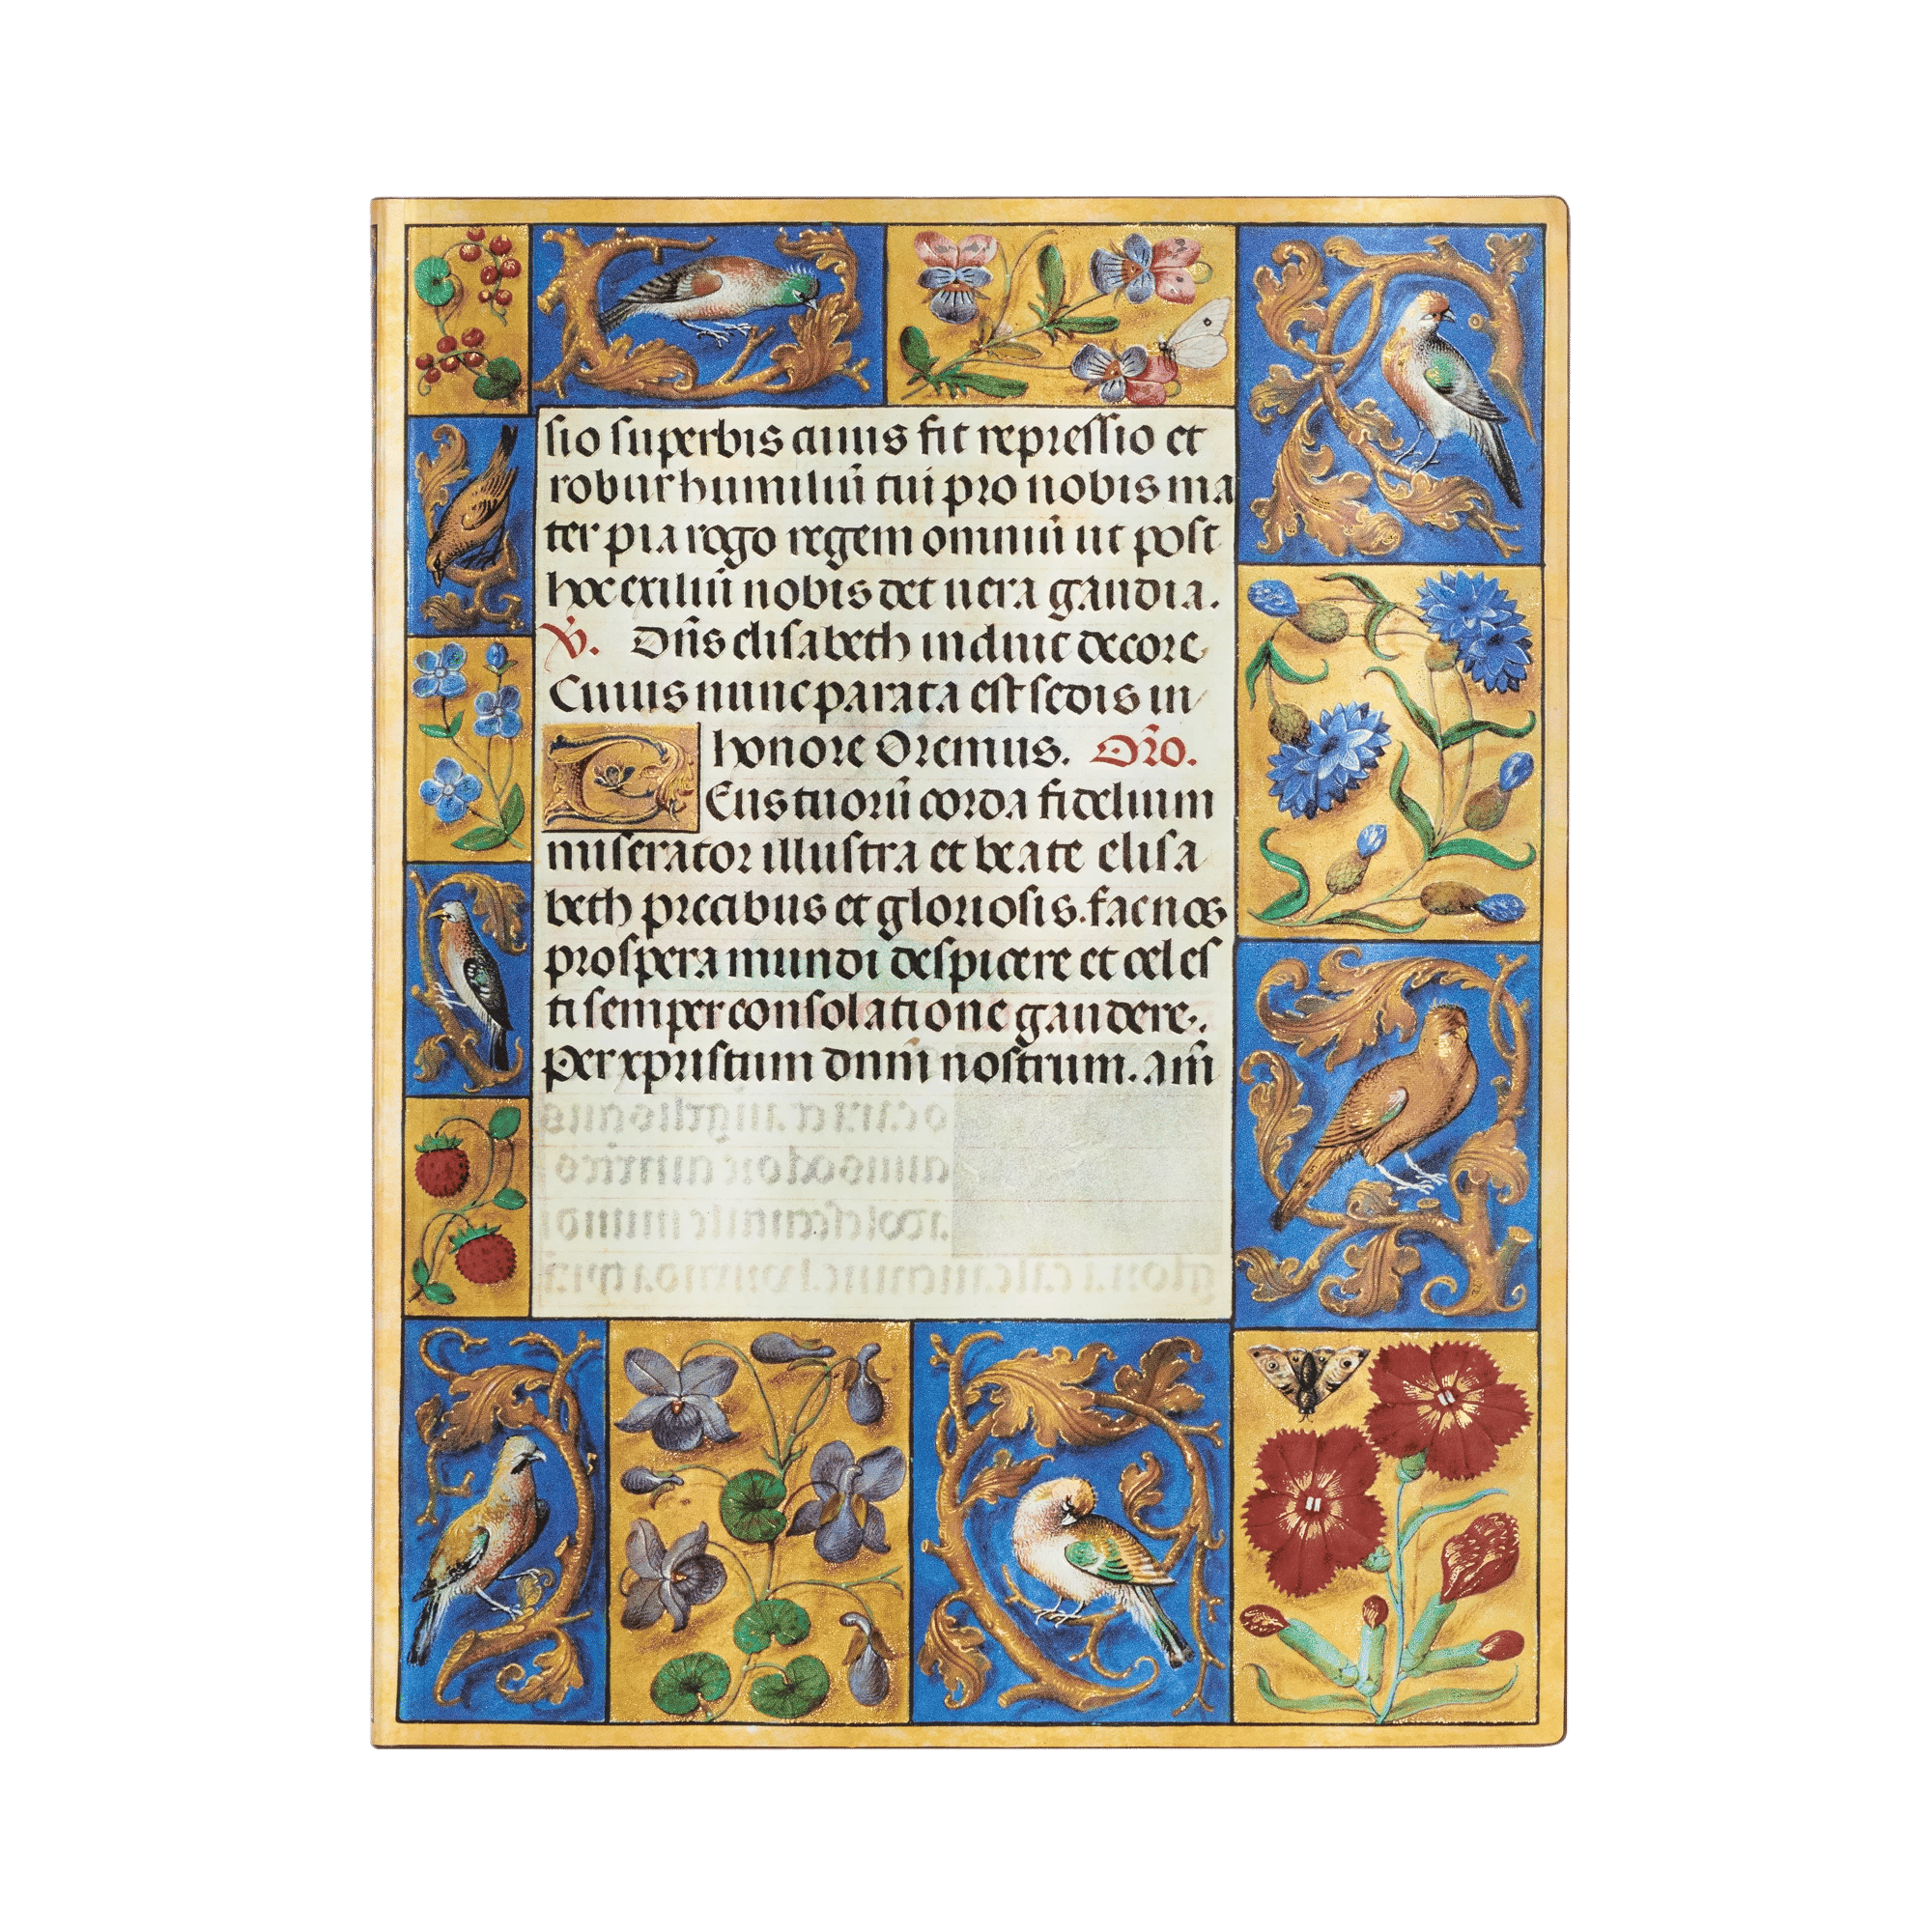 sio superbis cuius fit repressio et
robur humiliū tui pro nobis ma
ter pia rogo regem omniū ut post
hoc exiliū nobis det uera gaudia.
V̄. Dn̄s elisabeth induit decore
Cuius nunc parata est sedis in
honore Oremus. Or̄o.
Teus tuorū corda fidelium
miserator illustra et beate elisa
beth precibus et gloriosis. fac nos
prospera mundi despicere et celes
ti semper consolatione gaudere.
Per xpristum dnm̄ nostrum. am̄